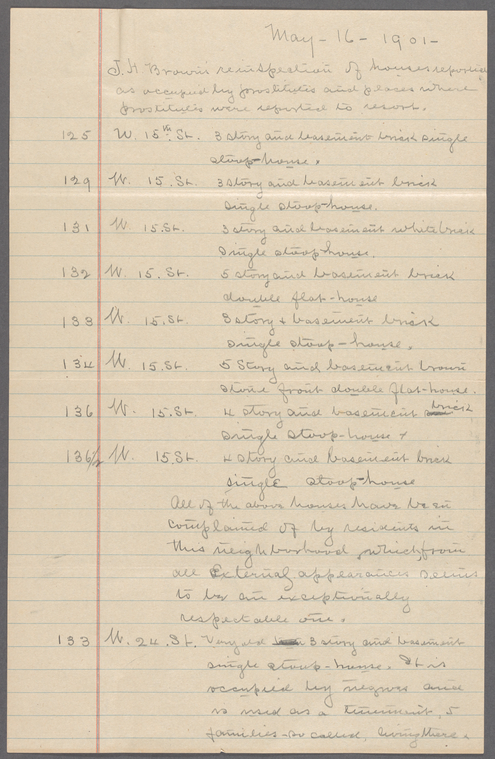 May - 16 - 1901 -
J. H. Brown's reinspection of houses reported
as occupied by prostitutes and places where
prostitutes were reported to resort.
125 W. 15th St. 3 story and basement brick single
stoop-house.
129 W. 15. St. 3 story and basement brick
single stoop-house.
131 W. 15. St. 3 story and basement white brick
single stoop-house.
132 W. 15. St. 5 story and basement brick
double flat-house
133 W. 15. St. 3 story & basement brick
single stoop-house.
134 W. 15. St. 5 Story and basement brown
stone front double flat-house.
136 W. 15. St. 4 story and basement brick
single stoop-house
136½ W. 15. St. 4 story and basement brick
single stoop-house
All of the above houses have been
complained of by residents in
this neighborhood, which from
all external appearances seems
to be an exceptionally
respectable one.
133 W. 24. St. Very old 3 story and basement
single stoop-house. It is
occupied by negroes and
is used as a tenement, 5
families - so called, living there.